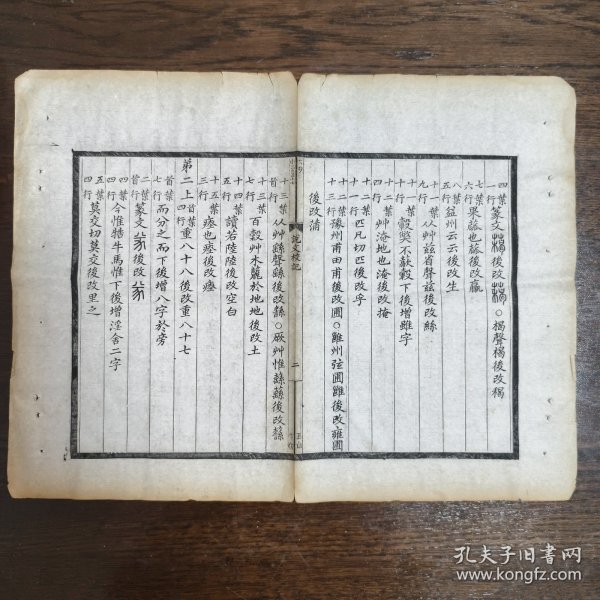 四葉一行 篆文 後改 ○揭聲揭後改
七葉六行 果蓏也蓏後改蠃
八葉五行 益州云云後改生
十葉九行 从艸茲省聲茲後改絲
十一葉一行 縠獎不畝縠下後增雖字
十二葉四行 艸淹地也淹後改掩
十二葉十一行 匹凡切匹後改孚
十二葉十三行 豫州甫田甫後改圃○雝州弦圃雝後改雍圃
後改蒲
說文校記
二
十三葉首行 从艸繇聲繇後改䌛○厥艸惟繇繇後改䌛
十三葉七行 百穀艸木麗於地地後改土
十四葉五行 讀若陸陸後改空白
十五葉三行 瘞也瘞後改
第二上 首葉四行 重八十八後改重八十七
首葉七行 而分之而下後增八字於旁
二葉首行 篆文 後改
四葉四行 今惟牿牛馬惟下後增淫舍二字
五葉四行 莫交切莫交後改里之
孔夫子旧书网
www.kongfz.com